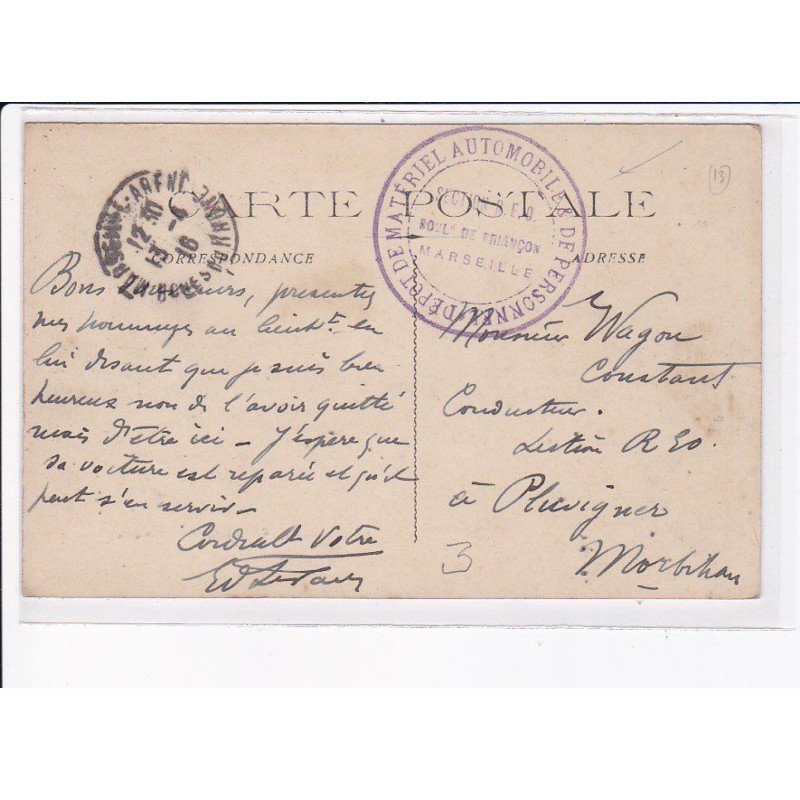 CARTE POSTALE
CORRESPONDANCE
ADRESSE
13
12 30
4
16
DÉPÔT DE MATÉRIEL AUTOMOBILE & DE PERSONNEL
SECTION R.E.O
BOULD DE BRIANÇON
MARSEILLE
Bons, présentez
mes hommages au lieutt en
lui disant que je suis bien
heureux non de l'avoir quitté
mais d'être ici - J'espère que
sa voiture est réparée et qu'il
peut s'en servir -
Cordialt Votre
Ed
Monsieur Wagon
Constant
Conducteur.
Section R E O.
à Pluvigner
Morbihan
3